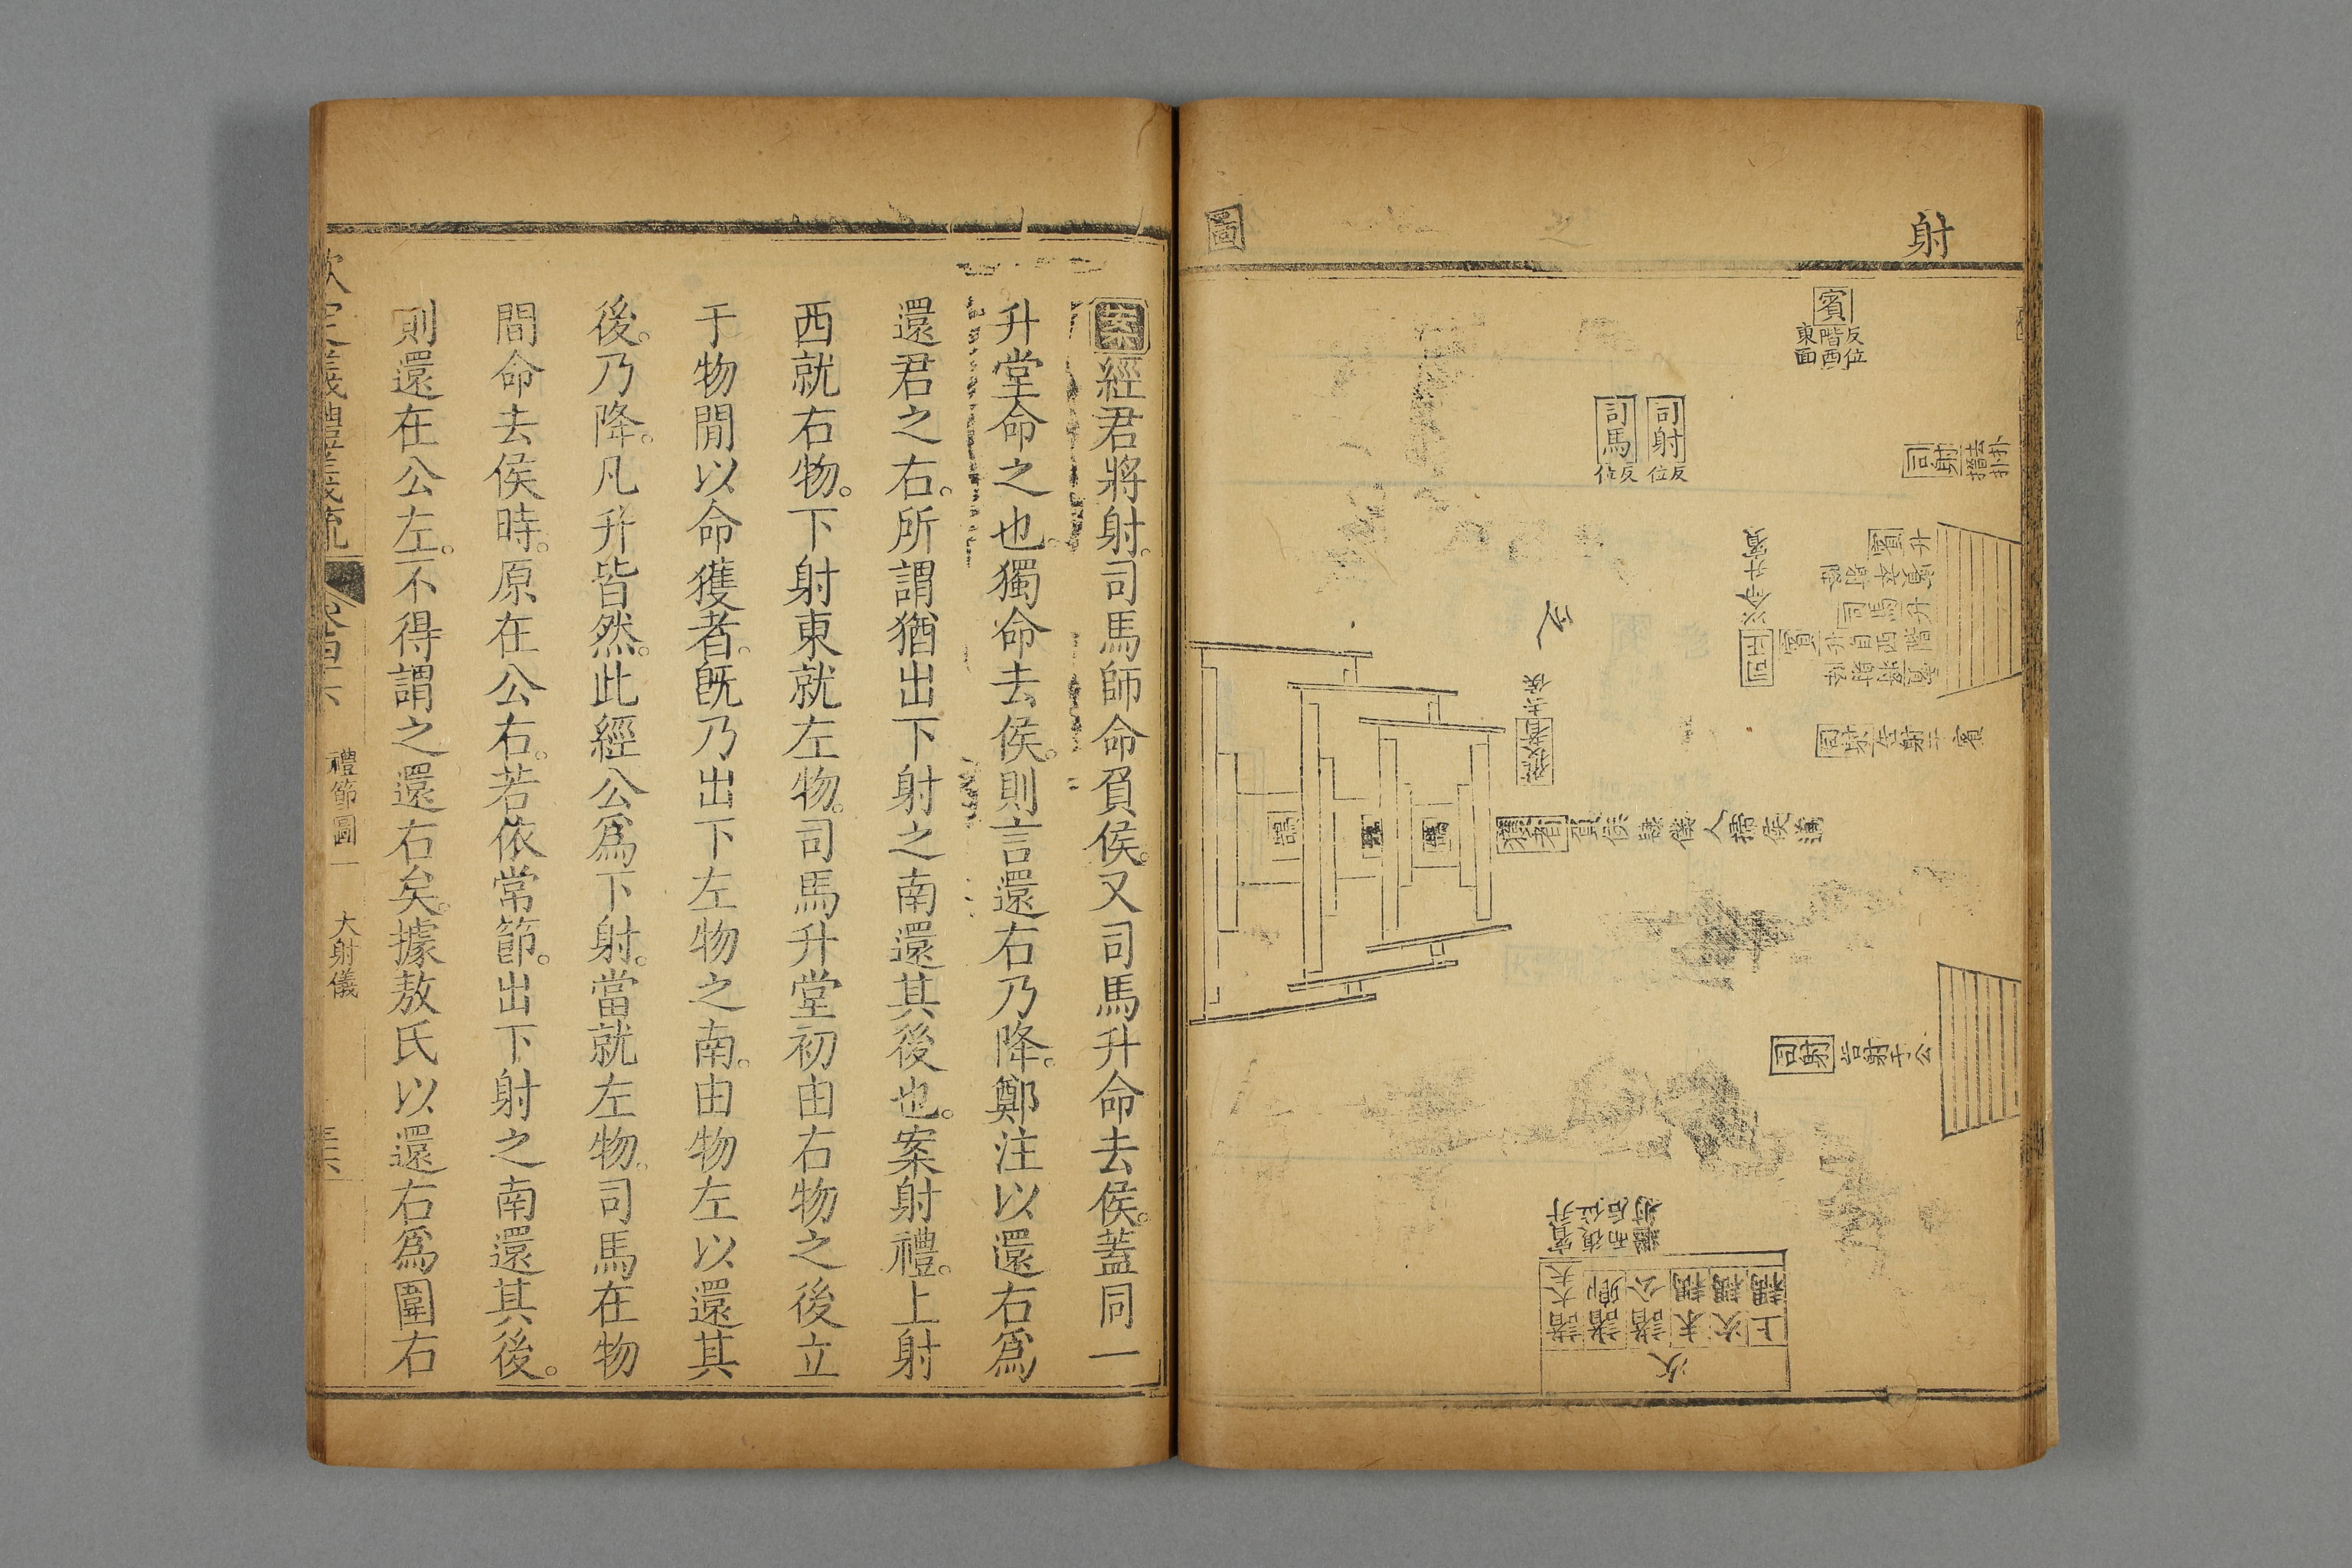 射
圖
賓
反位
階西
東面
司射
反位
司馬
反位
司射
去扑
搢扑
賓升
司馬升
自西階
以命升賓
獲者
去侯
獲者
負侯
隸僕人埽侯道
司射
公
次
上耦
次耦
末耦
諸公
諸卿
諸大夫
案經君將射。司馬師命負侯。又司馬升命去侯。蓋同一
升堂命之也。獨命去侯。則言還右乃降。鄭注以還右爲
還君之右。所謂猶出下射之南還其後也。案射禮。上射
西就右物。下射東就左物。司馬升堂初由右物之後立
于物閒以命獲者。既乃出下左物之南。由物左以還其
後。乃降。凡升皆然。此經公爲下射。當就左物。司馬在物
間命去侯時。原在公右。若依常節。出下射之南還其後。
則還在公左。不得謂之還右矣。據敖氏以還右爲圍右
欽定儀禮義疏
禮節圖一
大射儀